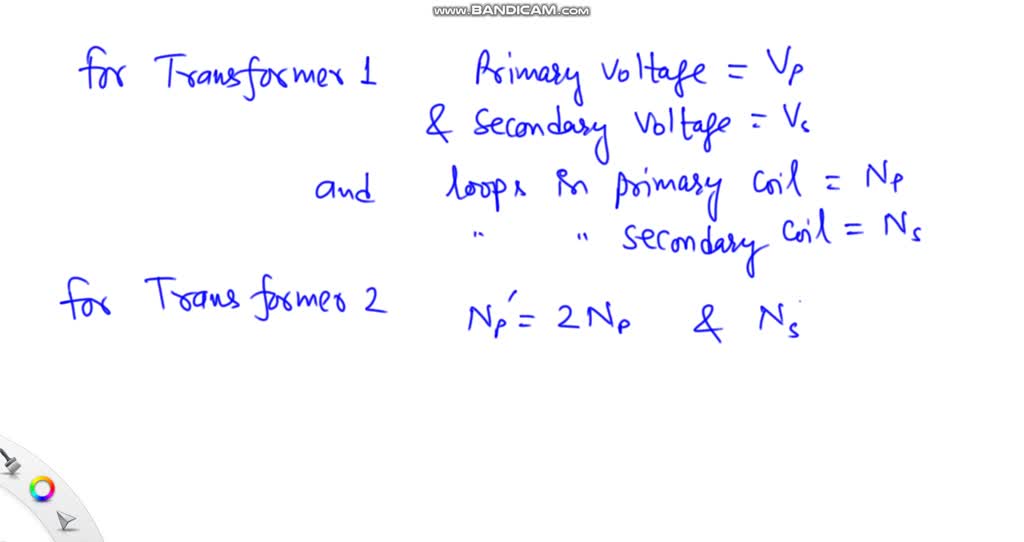 www.BANDICAM.com
for Transformer 1 Primary Voltage = Vp
& secondary voltage = Vs
and loops in primary coil = Np
" " secondary coil = Ns
for Transformer 2 Np' = 2Np & Ns